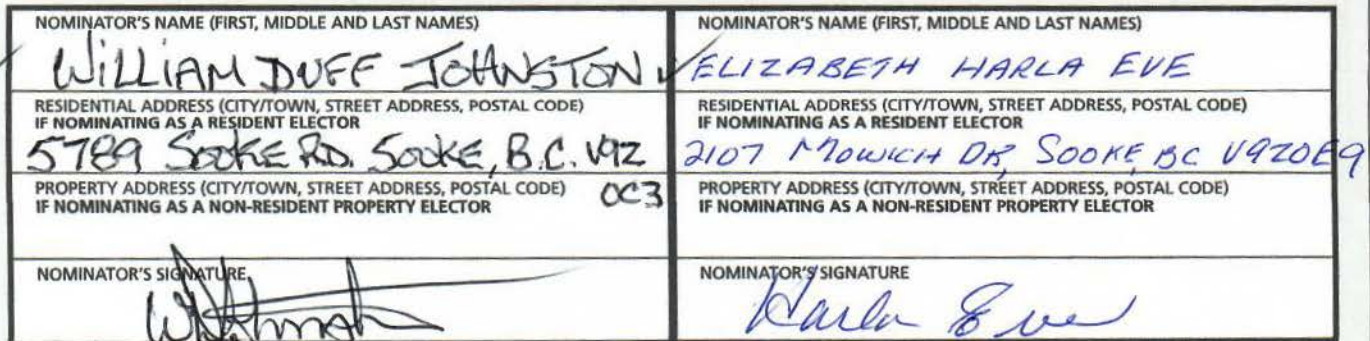 NOMINATOR'S NAME (FIRST, MIDDLE AND LAST NAMES)
WILLIAM DUFF JOHNSTON
RESIDENTIAL ADDRESS (CITY/TOWN, STREET ADDRESS, POSTAL CODE)
IF NOMINATING AS A RESIDENT ELECTOR
5789 SOOKE RD. SOOKE, B.C. V9Z
0C3
PROPERTY ADDRESS (CITY/TOWN, STREET ADDRESS, POSTAL CODE)
IF NOMINATING AS A NON-RESIDENT PROPERTY ELECTOR
NOMINATOR'S SIGNATURE
NOMINATOR'S NAME (FIRST, MIDDLE AND LAST NAMES)
ELIZABETH HARLA EVE
RESIDENTIAL ADDRESS (CITY/TOWN, STREET ADDRESS, POSTAL CODE)
IF NOMINATING AS A RESIDENT ELECTOR
2107 MOWICH DR, SOOKE, BC V9Z0E9
PROPERTY ADDRESS (CITY/TOWN, STREET ADDRESS, POSTAL CODE)
IF NOMINATING AS A NON-RESIDENT PROPERTY ELECTOR
NOMINATOR'S SIGNATURE
Harla Eve